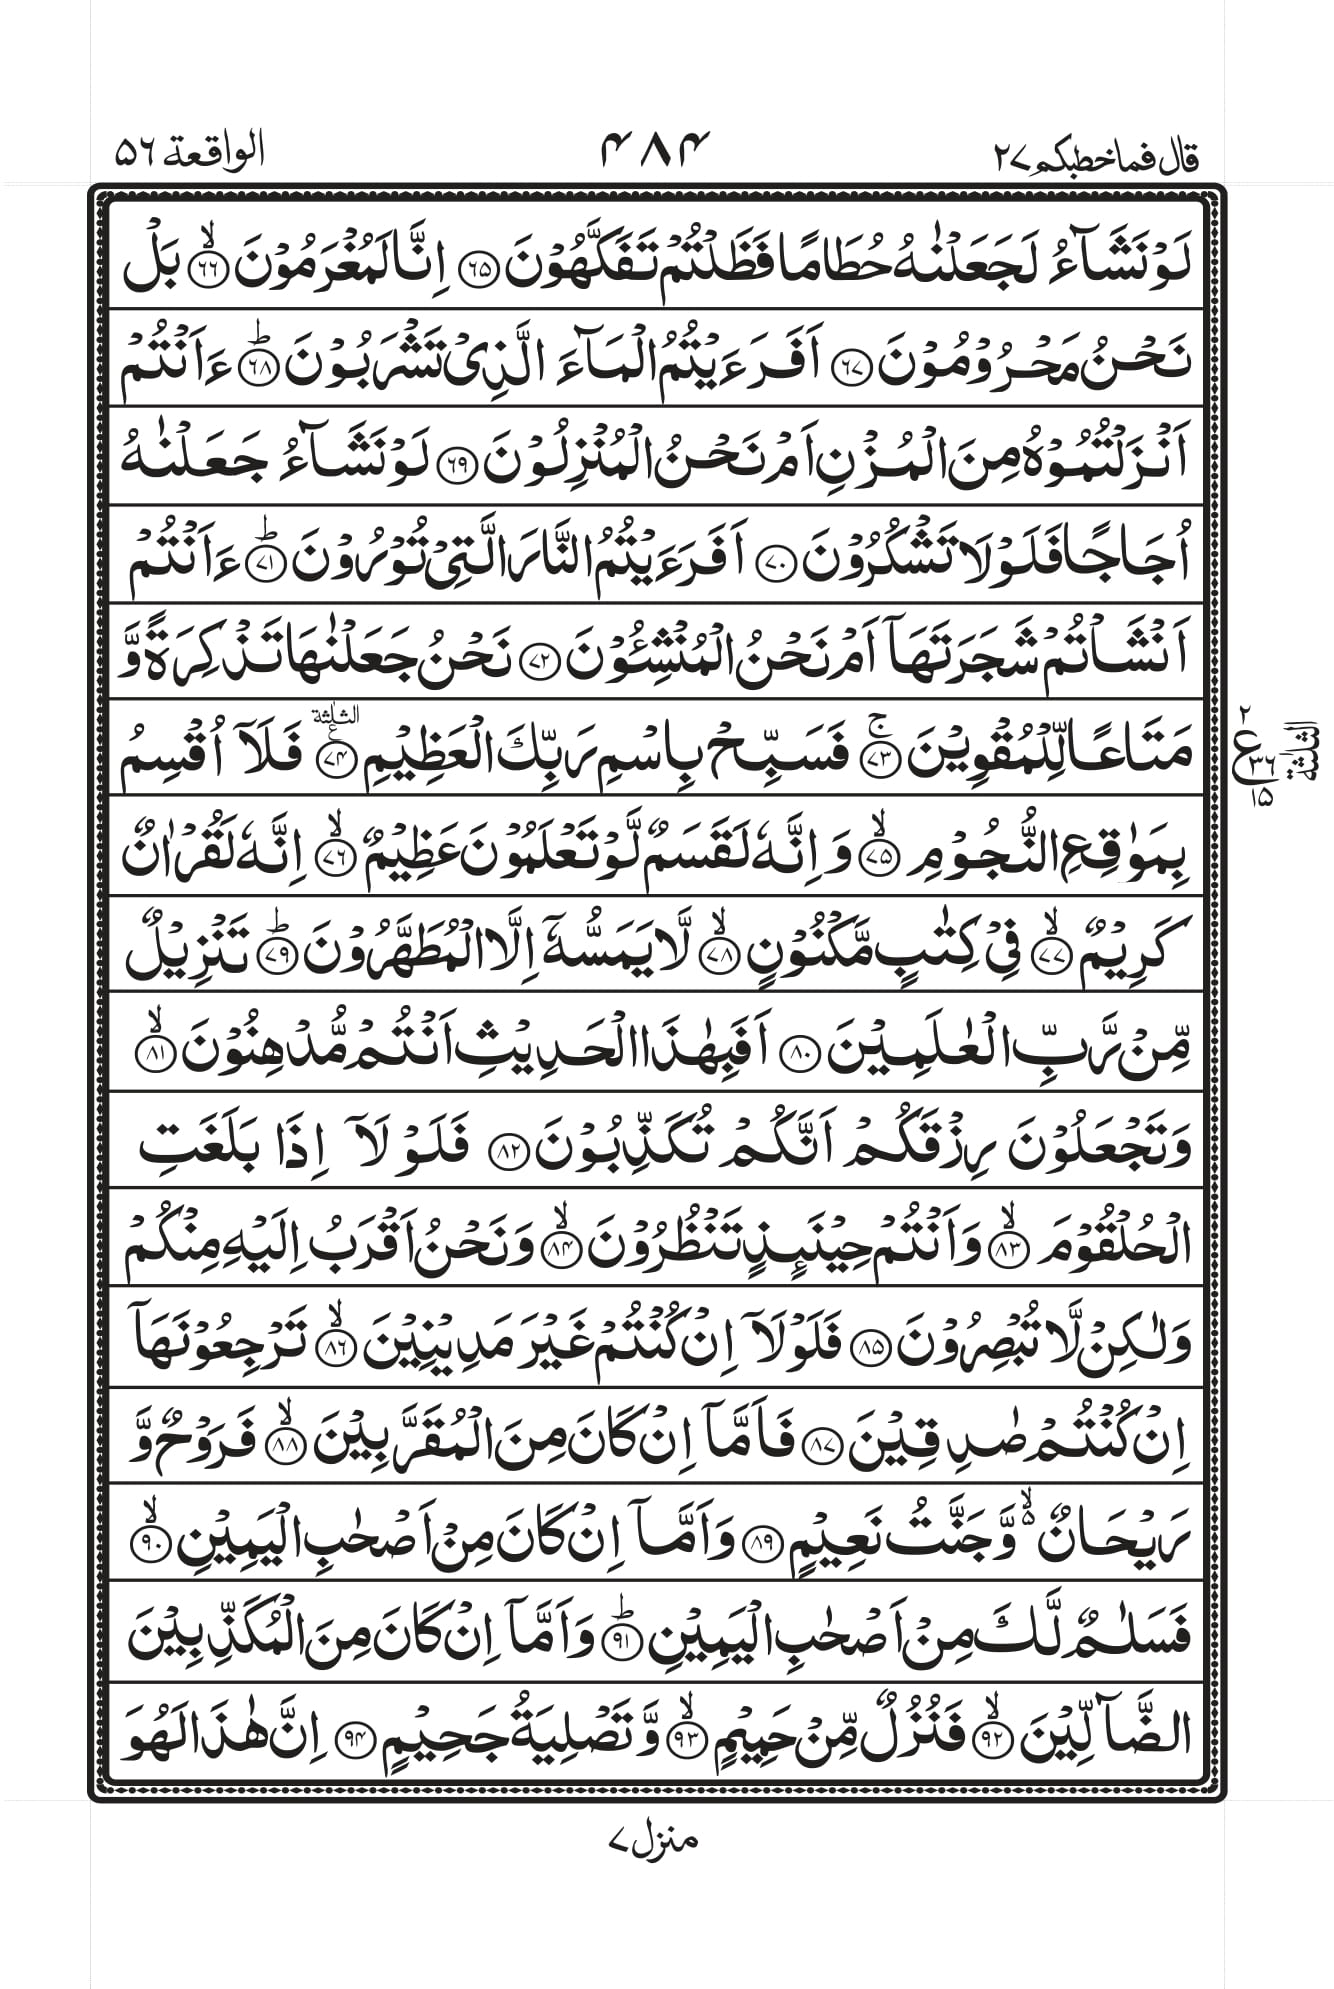 قال فما خطبكم ۲۷
۴۸۴
الواقعة ۵۶
لَوْ نَشَآءُ لَجَعَلْنٰهُ حُطَامًا فَظَلْتُمْ تَفَكَّهُوْنَ ﴿۶۵﴾ اِنَّا لَمُغْرَمُوْنَ ۙ﴿۶۶﴾ بَلْ
نَحْنُ مَحْرُوْمُوْنَ ﴿۶۷﴾ اَفَرَءَيْتُمُ الْمَآءَ الَّذِىْ تَشْرَبُوْنَ ؕ﴿۶۸﴾ ءَاَنْتُمْ
اَنْزَلْتُمُوْهُ مِنَ الْمُزْنِ اَمْ نَحْنُ الْمُنْزِلُوْنَ ﴿۶۹﴾ لَوْ نَشَآءُ جَعَلْنٰهُ
اُجَاجًا فَلَوْلَا تَشْكُرُوْنَ ﴿۷۰﴾ اَفَرَءَيْتُمُ النَّارَ الَّتِىْ تُوْرُوْنَ ؕ﴿۷۱﴾ ءَاَنْتُمْ
اَنْشَاْتُمْ شَجَرَتَهَآ اَمْ نَحْنُ الْمُنْشِـُٔوْنَ ﴿۷۲﴾ نَحْنُ جَعَلْنٰهَا تَذْكِرَةً وَّ
مَتَاعًا لِّلْمُقْوِيْنَ ۚ﴿۷۳﴾ فَسَبِّحْ بِاسْمِ رَبِّكَ الْعَظِيْمِ ﴿۷۴﴾ الثلٰثة ع فَلَآ اُقْسِمُ
بِمَوٰقِعِ النُّجُوْمِ ۙ﴿۷۵﴾ وَ اِنَّهٗ لَقَسَمٌ لَّوْ تَعْلَمُوْنَ عَظِيْمٌ ۙ﴿۷۶﴾ اِنَّهٗ لَقُرْاٰنٌ
كَرِيْمٌ ۙ﴿۷۷﴾ فِىْ كِتٰبٍ مَّكْنُوْنٍ ۙ﴿۷۸﴾ لَّا يَمَسُّهٗٓ اِلَّا الْمُطَهَّرُوْنَ ؕ﴿۷۹﴾ تَنْزِيْلٌ
مِّنْ رَّبِّ الْعٰلَمِيْنَ ﴿۸۰﴾ اَفَبِهٰذَا الْحَدِيْثِ اَنْتُمْ مُّدْهِنُوْنَ ۙ﴿۸۱﴾
وَتَجْعَلُوْنَ رِزْقَكُمْ اَنَّكُمْ تُكَذِّبُوْنَ ﴿۸۲﴾ فَلَوْلَآ اِذَا بَلَغَتِ
الْحُلْقُوْمَ ۙ﴿۸۳﴾ وَاَنْتُمْ حِيْنَئِذٍ تَنْظُرُوْنَ ۙ﴿۸۴﴾ وَنَحْنُ اَقْرَبُ اِلَيْهِ مِنْكُمْ
وَلٰكِنْ لَّا تُبْصِرُوْنَ ﴿۸۵﴾ فَلَوْلَآ اِنْ كُنْتُمْ غَيْرَ مَدِيْنِيْنَ ۙ﴿۸۶﴾ تَرْجِعُوْنَهَآ
اِنْ كُنْتُمْ صٰدِقِيْنَ ﴿۸۷﴾ فَاَمَّآ اِنْ كَانَ مِنَ الْمُقَرَّبِيْنَ ۙ﴿۸۸﴾ فَرَوْحٌ وَّ
رَيْحَانٌ ۙ۬ وَّجَنَّتُ نَعِيْمٍ ﴿۸۹﴾ وَاَمَّآ اِنْ كَانَ مِنْ اَصْحٰبِ الْيَمِيْنِ ۙ﴿۹۰﴾
فَسَلٰمٌ لَّكَ مِنْ اَصْحٰبِ الْيَمِيْنِ ؕ﴿۹۱﴾ وَاَمَّآ اِنْ كَانَ مِنَ الْمُكَذِّبِيْنَ
الضَّآلِّيْنَ ۙ﴿۹۲﴾ فَنُزُلٌ مِّنْ حَمِيْمٍ ۙ﴿۹۳﴾ وَّتَصْلِيَةُ جَحِيْمٍ ﴿۹۴﴾ اِنَّ هٰذَا لَهُوَ
۲
ع ۳۶
۱۵
الثلٰثة
منزل ۷